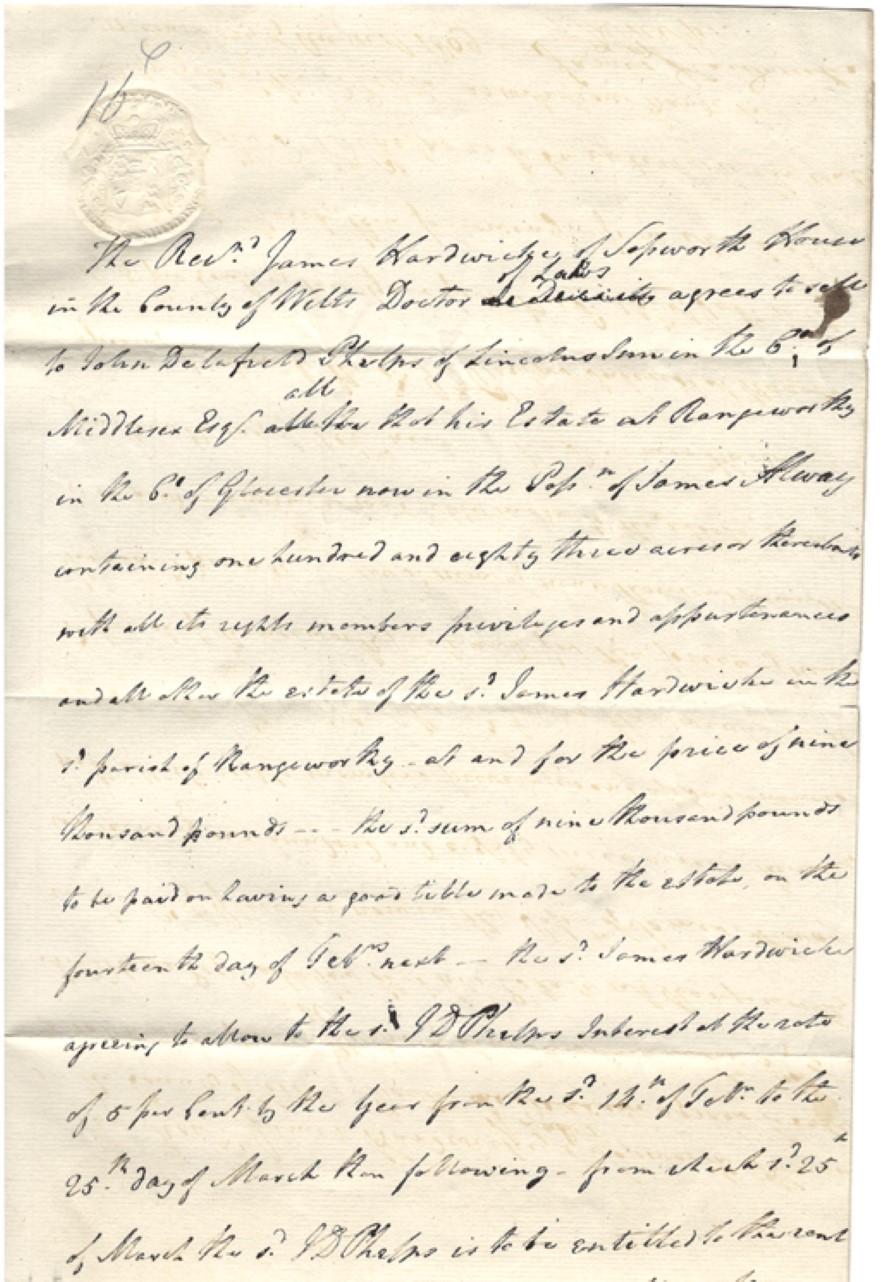 16
The Revd. James Hardwicke of Sopworth House
of Laws
in the County of Wilts Doctor agrees to sell
to John Delafield Phelps of Lincolns Inn in the Cy. of
all
Middlesex Esqr. that his Estate at Rangeworthy
in the Cy. of Glocester now in the Possn. of James Alway
containing one hundred and eighty three acres or thereabouts
with all its rights members privileges and appurtenances
and all other the estate of the sd. James Hardwicke in the
sd. parish of Rangeworthy - at and for the price of nine
thousand pounds - - - the sd. sum of nine thousand pounds
to be paid on having a good title made to the estate, on the
fourteenth day of Feby. next - the sd. James Hardwicke
agreeing to allow to the sd. J D Phelps Interest at the rate
of 5 per Cent by the Year from the sd. 14th. of Feby. to the
25th. day of March then following - from which sd. 25th
of March the sd. J D Phelps is to be entitled to the rent